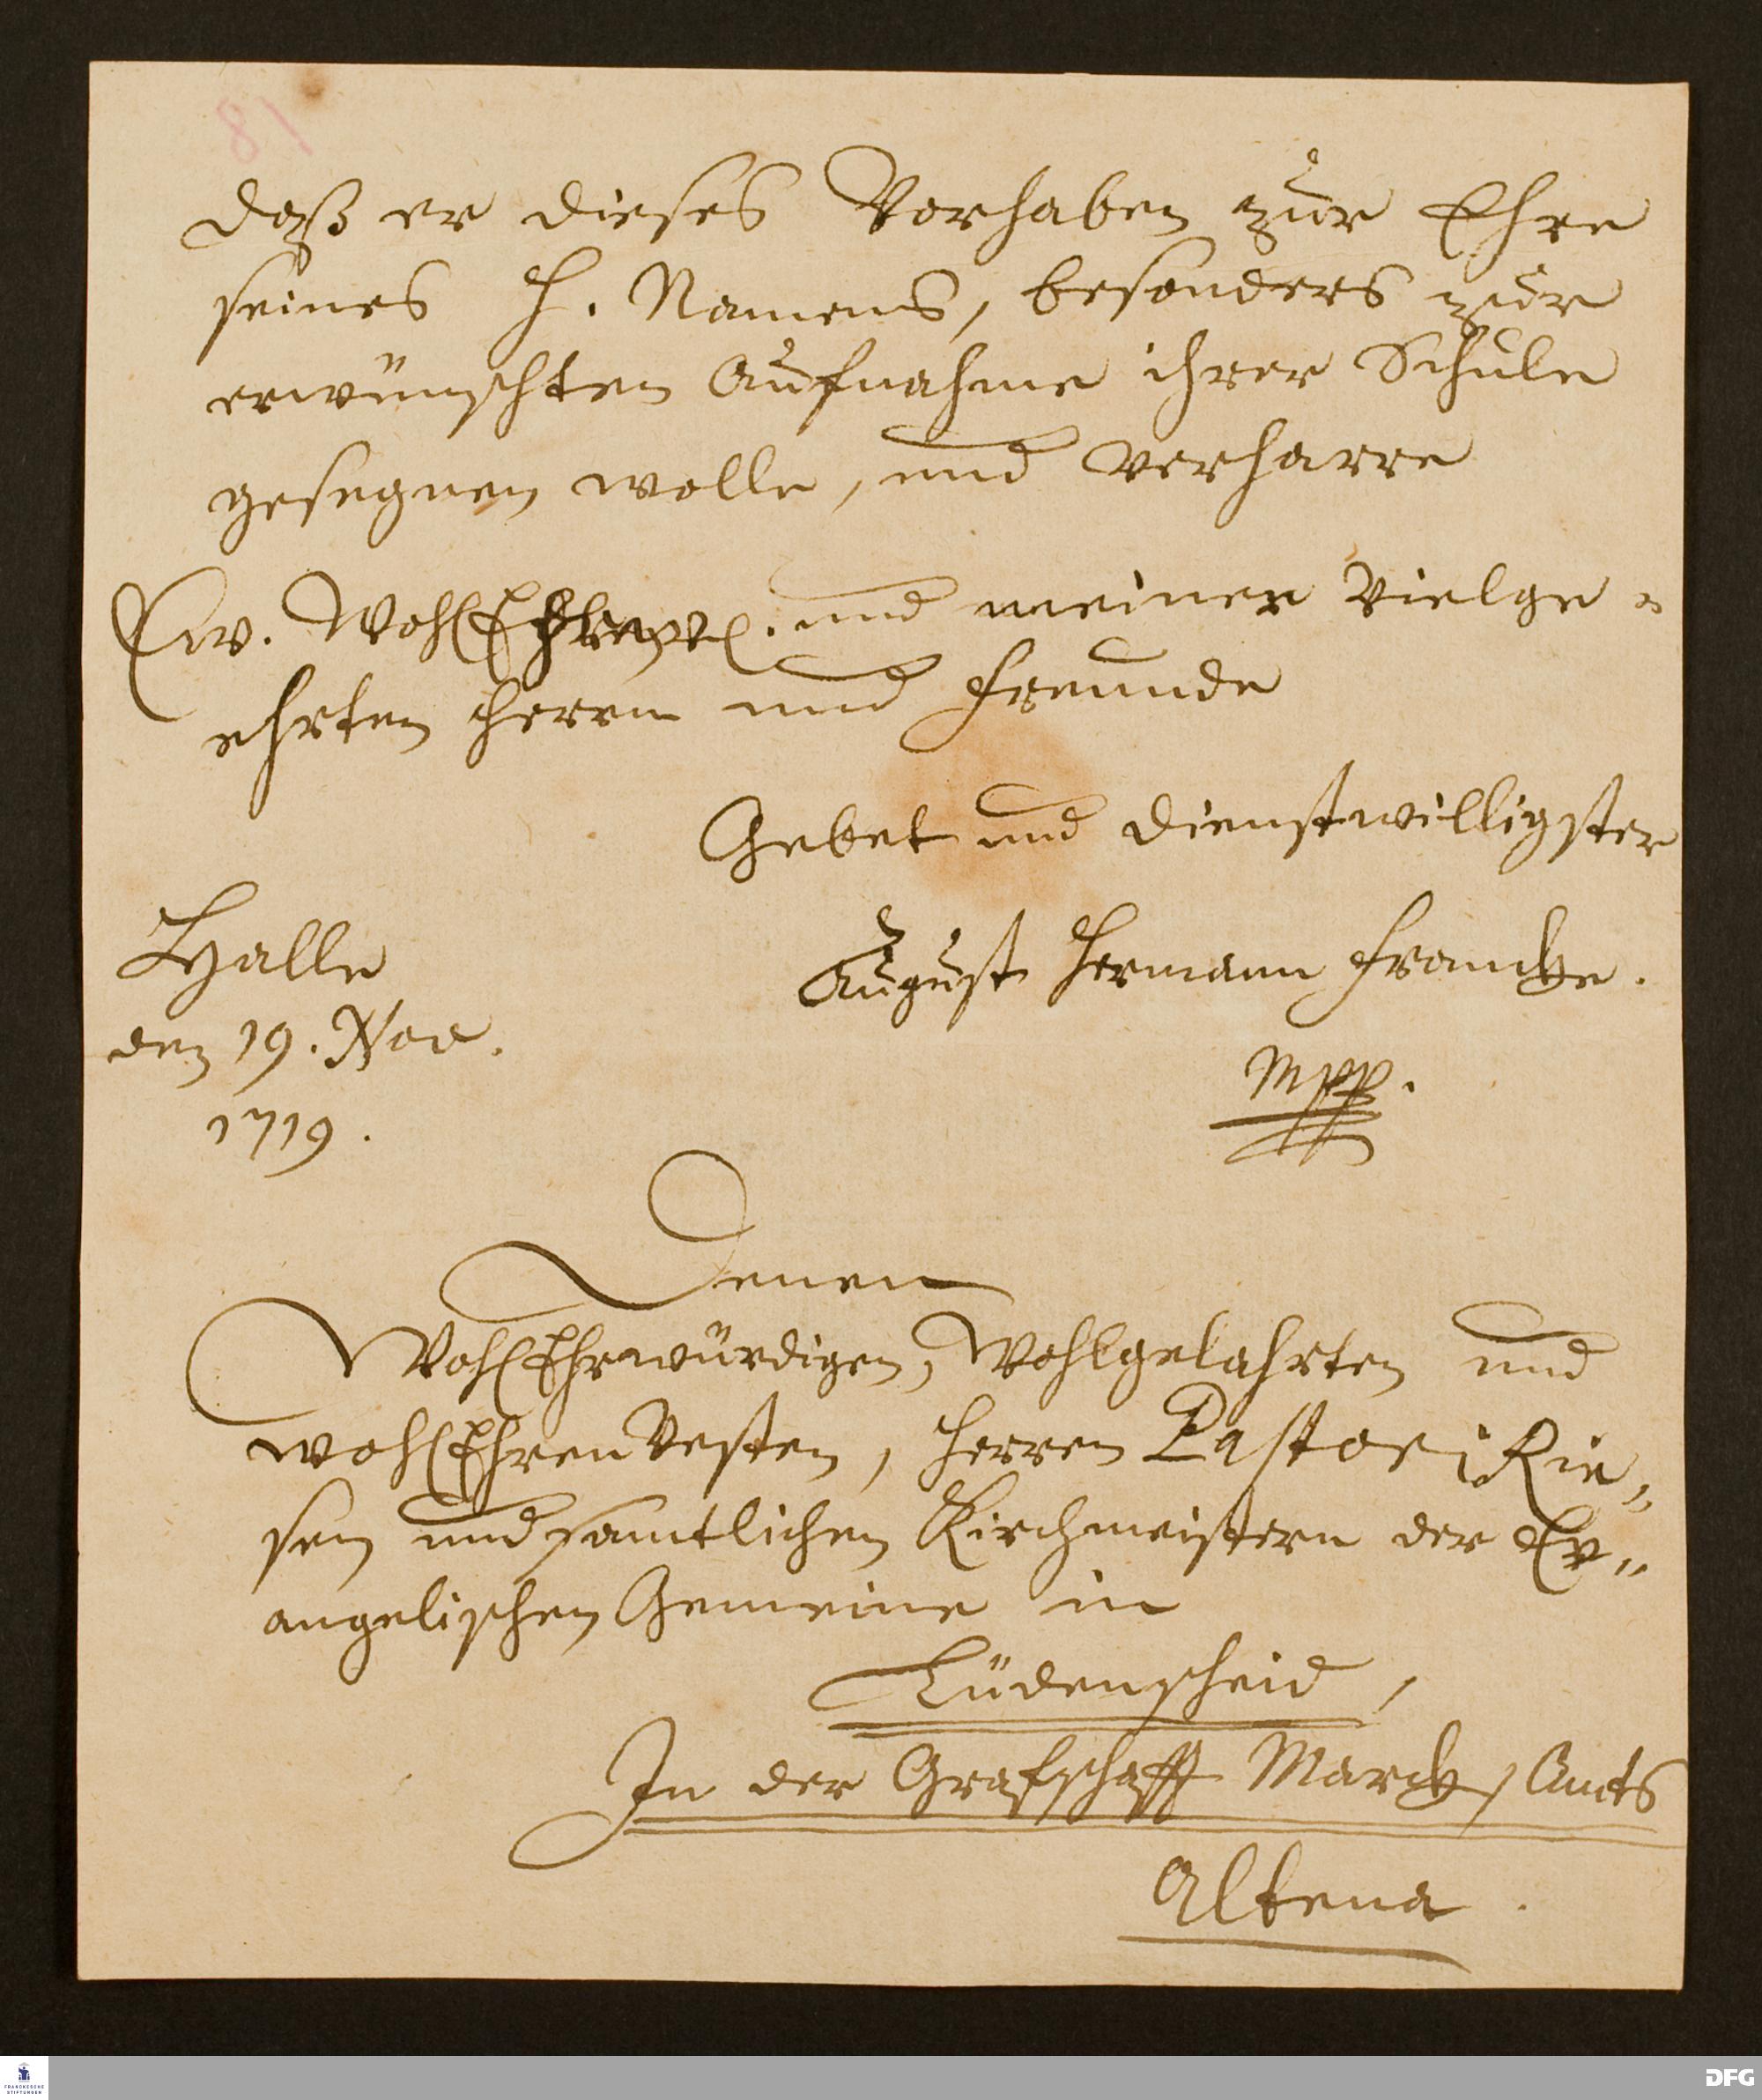 daß er dieses Vorhaben zur Ehre
seines H. Namens, besonders zur
erwünschten Aufnahme ihrer Schule
gesegnen wolle, und verharre
Ew. WohlEhrw. und meiner Vielge-
ehrten Herrn und Freunde
Gebet und dienstwilligster
August Hermann Francke.
Mpp.
Halle
den 19. Nov.
1719.
Denen
WohlEhrwürdigen, Wohlgelahrten und
WohlEhrenVesten, Herren Pastori Rie-
sen und samtlichen Kirchmeistern der Ev-
angelischen Gemeine in
Lüdenscheid,
In der Grafschafft Marck, Amts
Altena.
FRANCKESCHE STIFTUNGEN
DFG